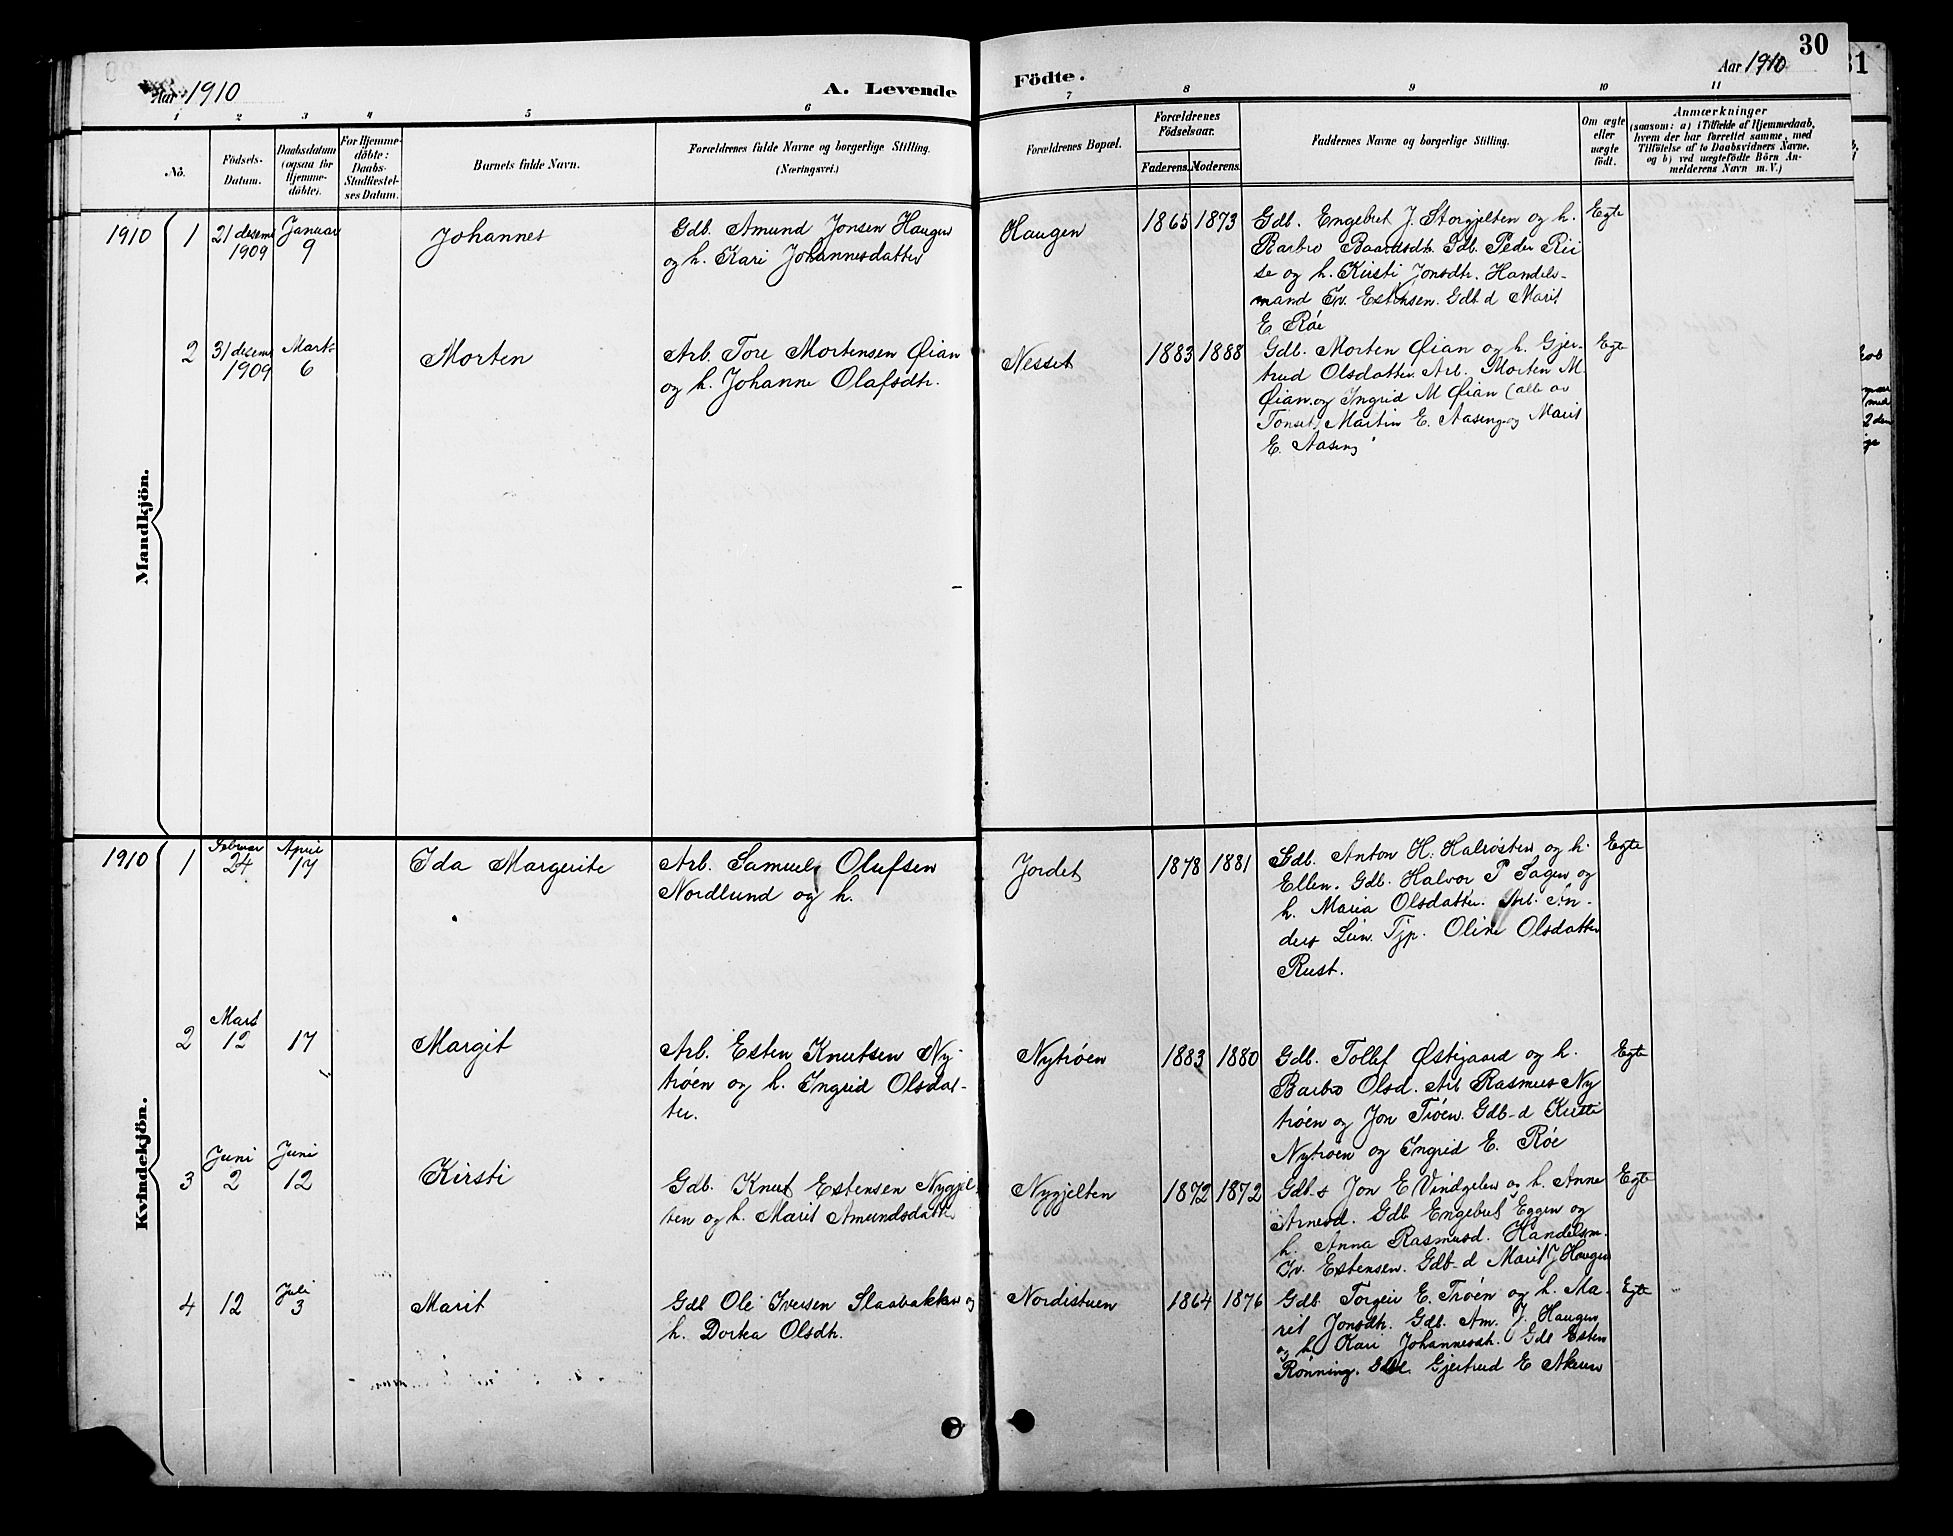 Aar 1910
A. Levende
1 2 3 4 5 6
No.
Födsels-
Datum.
Daabsdatum
(ogsaa for
Hjemme-
döbte).
For Hjemme-
döbte:
Daabs-
Stadfæstel-
ses Datum.
Barnets fulde Navn.
Forældrenes fulde Navne og borgerlige Stilling.
(Næringsvei.)
Mandkjön.
1910 1 21 desem 1909
Januar 9
Johannes
Gdb. Amund Jonsen Haugen
og h. Kari Johannesdatter
2 31 desem 1909
Mart. 6
Morten
Arb. Tore Mortensen Øian
og h. Johanne Olafsdtr.
Kvindekjön.
1910 1
Februar 24
April 17
Ida Margurite
Arb. Samuel Olufsen
Nordlund og h.
2
Mart 12
17
Margit
Arb. Esten Knutsen Ny-
trøen og h. Ingrid Olsdat-
ter.
3
Juni 2
Juni 12
Kirsti
Gdb. Knut Estensen Nygjel-
ten og h. Marit Amundsdatter
4 12
Juli 3
Marit
Gdb Ole Iversen Slaabakken og
h. Dortea Olsdtr.
Födte.
30
Aar 1910
31
7 8 9 10 11
Forældrenes Bopæl.
Forældrenes
Födselsaar.
Faderens. Moderens.
Faddernes Navne og borgerlige Stilling.
Om ægte
eller
uægte
födt.
Anmærkninger
(saasom: a) i Tilfælde af Hjemmedaab,
hvem der har forrettet samme, med
Tilföielse af to Daabsvidners Navne.
og b) ved uægtefödte Börn An-
melderens Navn m. V.)
Haugen 1865 1873
Gdb. Engebret J. Storgjelten og h.
Barbro Baardsdtr. Gdb. Peder Rii
se og h. Kirsti Jonsdtr. Handels-
mand Iv. Estensen. Gdb d Marit
E. Røe
Egte
Nesset 1883 1888
Gdb. Morten Øian og h. Gjer-
trud Olsdatter. Arb. Morten M.
Øian og Ingrid M Øian (alle av
Tønset) Martin E. Aaseng og Marit
E. Aaseng
Egte
Jordet 1878 1881
Gdb. Anton H. Halvøsten og h.
Ellen. Gdb. Halvor P Sagen og
h. Maria Olsdatter. Arb. An-
ders Lien. Tjp. Oline Olsdatter
Rust.
Egte
Nytrøen 1883 1880
Gdb. Tollef Østigaard og h.
Barbro Olsd. Arb Rasmus Ny
trøen og Jon Trøen. Gdb-d Kirsti
Nytrøen og Ingrid E. Røe
Egte
Nygjelten 1872 1872
Gdb-s Jon E Vindgelen og h. Anne
Arnesd. Gdb Engebret Eggen og
h. Anna Rasmusd. Handelsm.
Iv. Estensen. Gdb-d Marit J Haugen
Egte
Nordistuen 1864 1876
Gdb. Torgeir E. Trøen og h. Ma-
rit Jonsdtr. Gdb. Am. J. Haugen
og h Kari Johannesdtr. Gdb Esten
Rønning. Gjertrud E Akeren
Egte